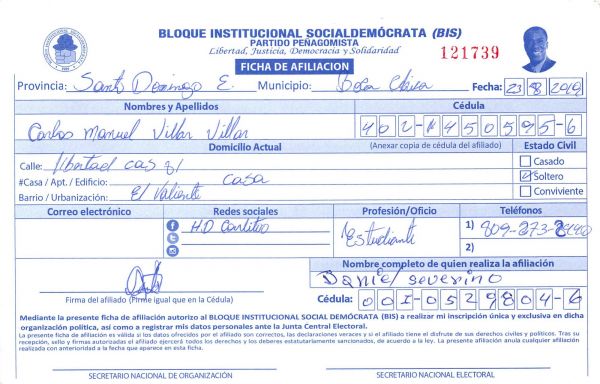 BLOQUE INSTITUCIONAL SOCIALDEMÓCRATA (BIS)
PARTIDO PEÑAGOMISTA
Libertad, Justicia, Democracia y Solidaridad
FICHA DE AFILIACION
121739
Provincia: Santo Domingo E. Municipio: Boca Chica Fecha: 23 8 2019
Nombres y Apellidos Cédula
Carlos Manuel Villar Villar 402-1450595-6
Domicilio Actual (Anexar copia de cédula del afiliado) Estado Civil
Calle: libertad cas 81 Casado
#Casa / Apt. / Edificio: casa Soltero
Barrio / Urbanización: El Valiente Conviviente
Correo electrónico Redes sociales Profesión/Oficio Teléfonos
H.D Carlitux Estudiante 1) 809-273-
2)
Nombre completo de quien realiza la afiliación
Daniel severino
Firma del afiliado (Firme igual que en la Cédula) Cédula: 001-0529804-6
Mediante la presente ficha de afiliación autorizo al BLOQUE INSTITUCIONAL SOCIAL DEMÓCRATA (BIS) a realizar mi inscripción única y exclusiva en dicha
organización política, así como a registrar mis datos personales ante la Junta Central Electoral.
La presente ficha de afiliación es válida si los datos ofrecidos por el afiliado son correctos, las declaraciones veraces y si el afiliado tiene el disfrute de sus derechos civiles y políticos. Tras su
recepción, sello y firmas autorizadas el afiliado ejercerá todos los derechos y los deberes estatutariamente sancionados, de acuerdo a la ley. La presente afiliación anula cualquier afiliación
realizada con anterioridad a la fecha que aparece en esta ficha.
SECRETARIO NACIONAL DE ORGANIZACIÓN SECRETARIO NACIONAL ELECTORAL